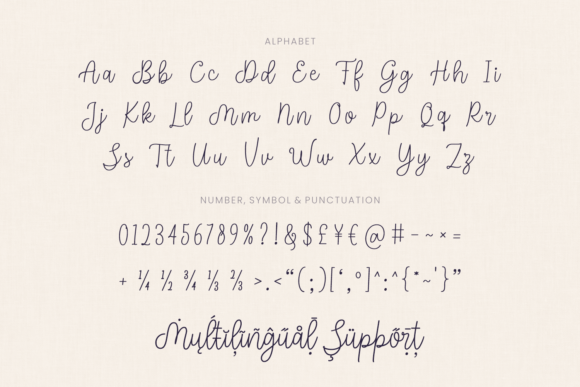 ALPHABET
Aa Bb Cc Dd Ee Ff Gg Hh Ii
Jj Kk Ll Mm Nn Oo Pp Qq Rr
Ss Tt Uu Vv Ww Xx Yy Zz
NUMBER, SYMBOL & PUNCTUATION
0123456789%?!&$£¥€@#-~×=
+ ¼ ½ ¾ ⅓ ⅔ >.<“(;)[‘,°]^:^{*~'}”
Ṁųĺŧıļīñĝűåḹ Şüppőŗţ